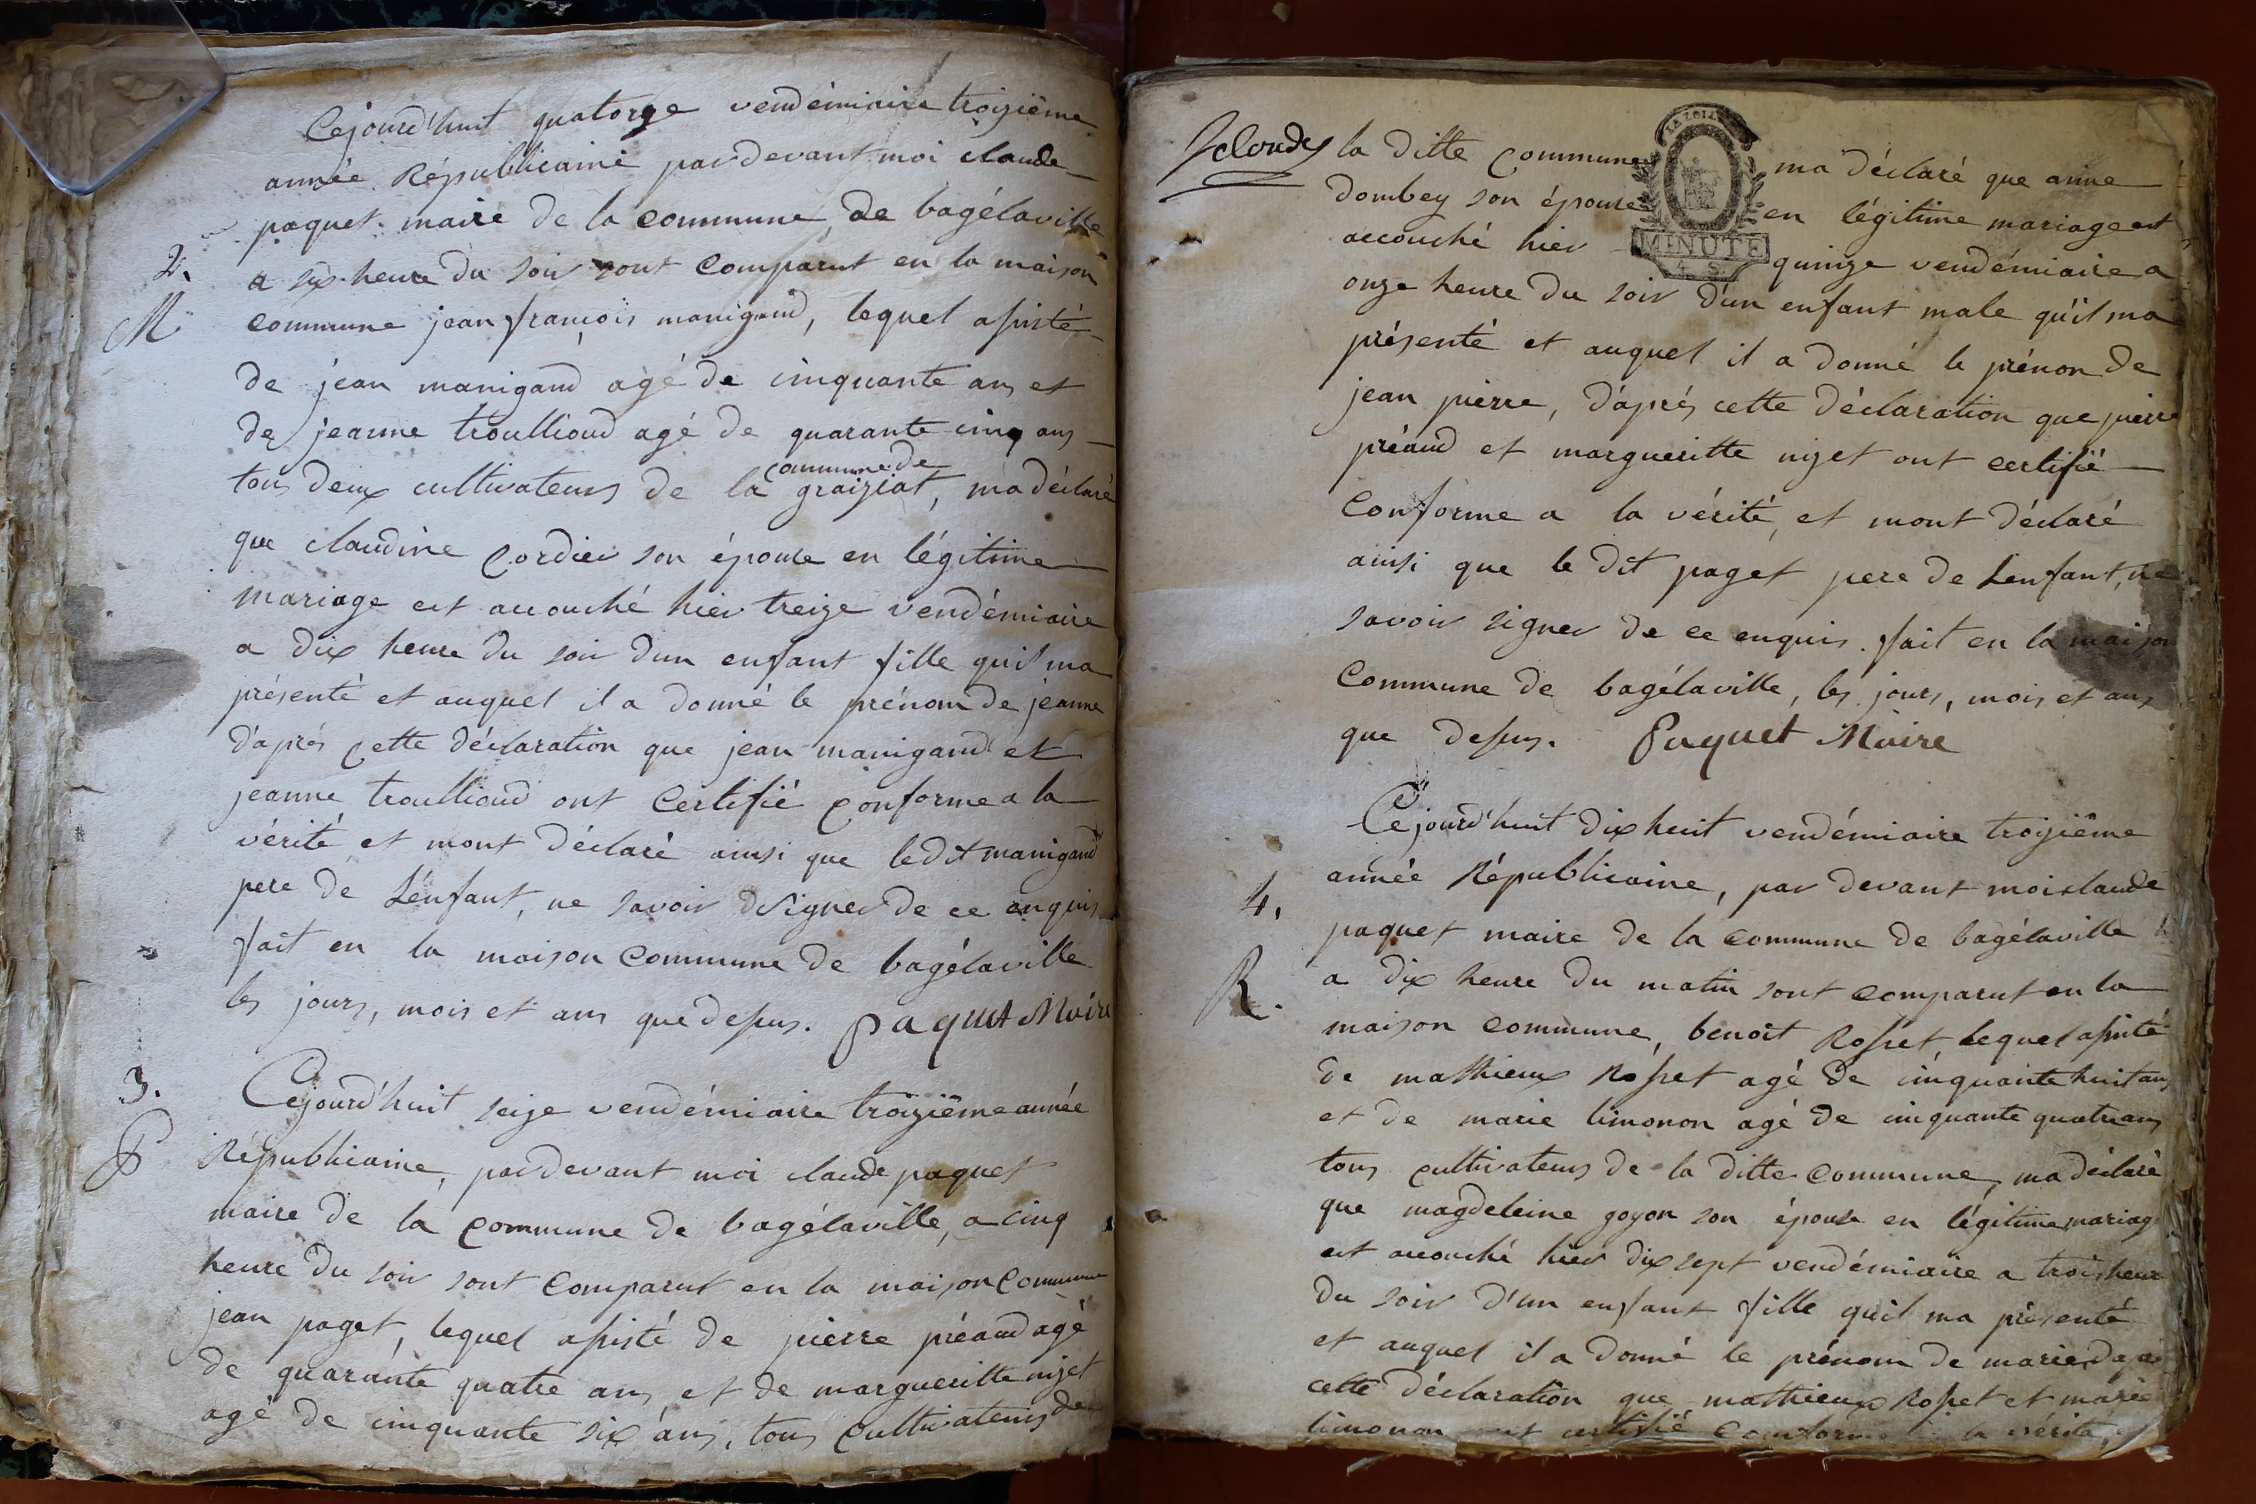 Cejourd'huit quatorze vendémiaire troizième
année Républicaine pardevant moi claude
paquet maire de la commune de bagélaville
2.
a six heure du soir sont comparut en la maison
M
commune jean françois manigand, lequel assisté
de jean manigand agé de cinquante ans et
de jeanne troullioud agé de quarante cinq ans
commune de
tous deux cultivateurs de la graiziat, ma déclaré
que claudine cordier son épouse en légitime
mariage est accouché hier treize vendémiaire
a dix heure du soir dun enfant fille quil ma
présenté et auquel il a donné le prénom de jeanne
d'après cette déclaration que jean manigand et
jeanne troullioud ont certifié conforme a la
vérité et mont déclaré ainsi que ledit manigand
pere de Lénfant, ne savoir signer de ce enquis
fait en la maison commune de bagélaville
les jours, mois et ans que dessus. Paquet Maire
3.
Cejourd'huit seize vendémiaire troizième année
P
Républicaine, pardevant moi claude paquet
maire de la commune de bagélaville, a cinq
heure du soir sont comparut en la maison commune
jean paget, lequel assisté de pierre préaud agé
de quarante quatre ans, et de margueritte nizet
agé de cinquante six ans, tous cultivateurs de
la ditte commune ma déclaré que anne
dombey son épouse en légitime mariage est
MINUTE
accouché hier quinze vendémiaire a
onze heure du soir d'un enfant male qu'il ma
présenté et auquel il a donné le prénon de
jean pierre, d'après cette déclaration que pierre
préaud et margueritte nizet ont certifié
conforme a la vérité, et mont déclaré
ainsi que le dit paget pere de Lenfant, ne
savoir signer de ce enquis. fait en la maison
commune de bagélaville, les jours, mois et ans
que dessus. Paquet Maire
Céjourd'huit dix huit vendémiaire troizième
année Républicaine, par devant moi claude
4.
paquet maire de la commune de bagélaville
R.
a dix heure du matin sont comparut en la
maison commune, benoit Rosset, lequel assisté
de mathieux Rosset agé de cinquante huit ans
et de marie limonon agé de cinquante quatre ans
tous cultivateurs de la ditte commune, ma déclaré
que magdeleine goyon son épouse en légitime mariage
est accouché hier dix sept vendémiaire a trois heure
du soir d'un enfant fille quil ma présenté
et auquel il a donné le prénom de marie, d'après
cette déclaration que mathieux Rosset et marie
limonon ont certifié conforme a la vérité,